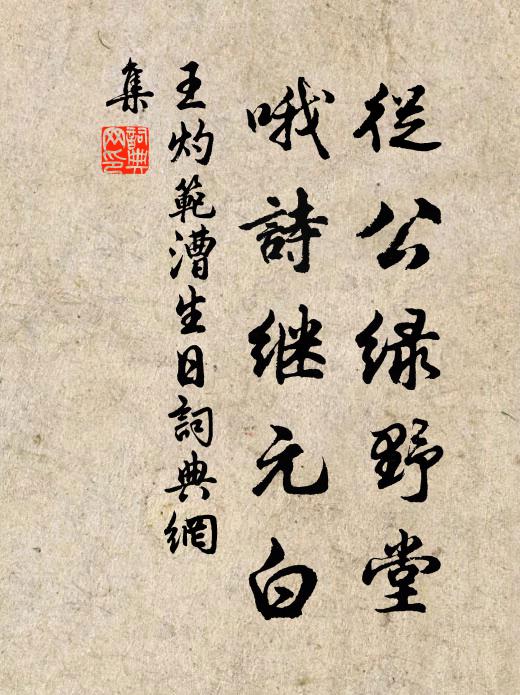 從公緑野堂
哦詩继元白
王灼範漕生日詞典網
集
詞典
网印